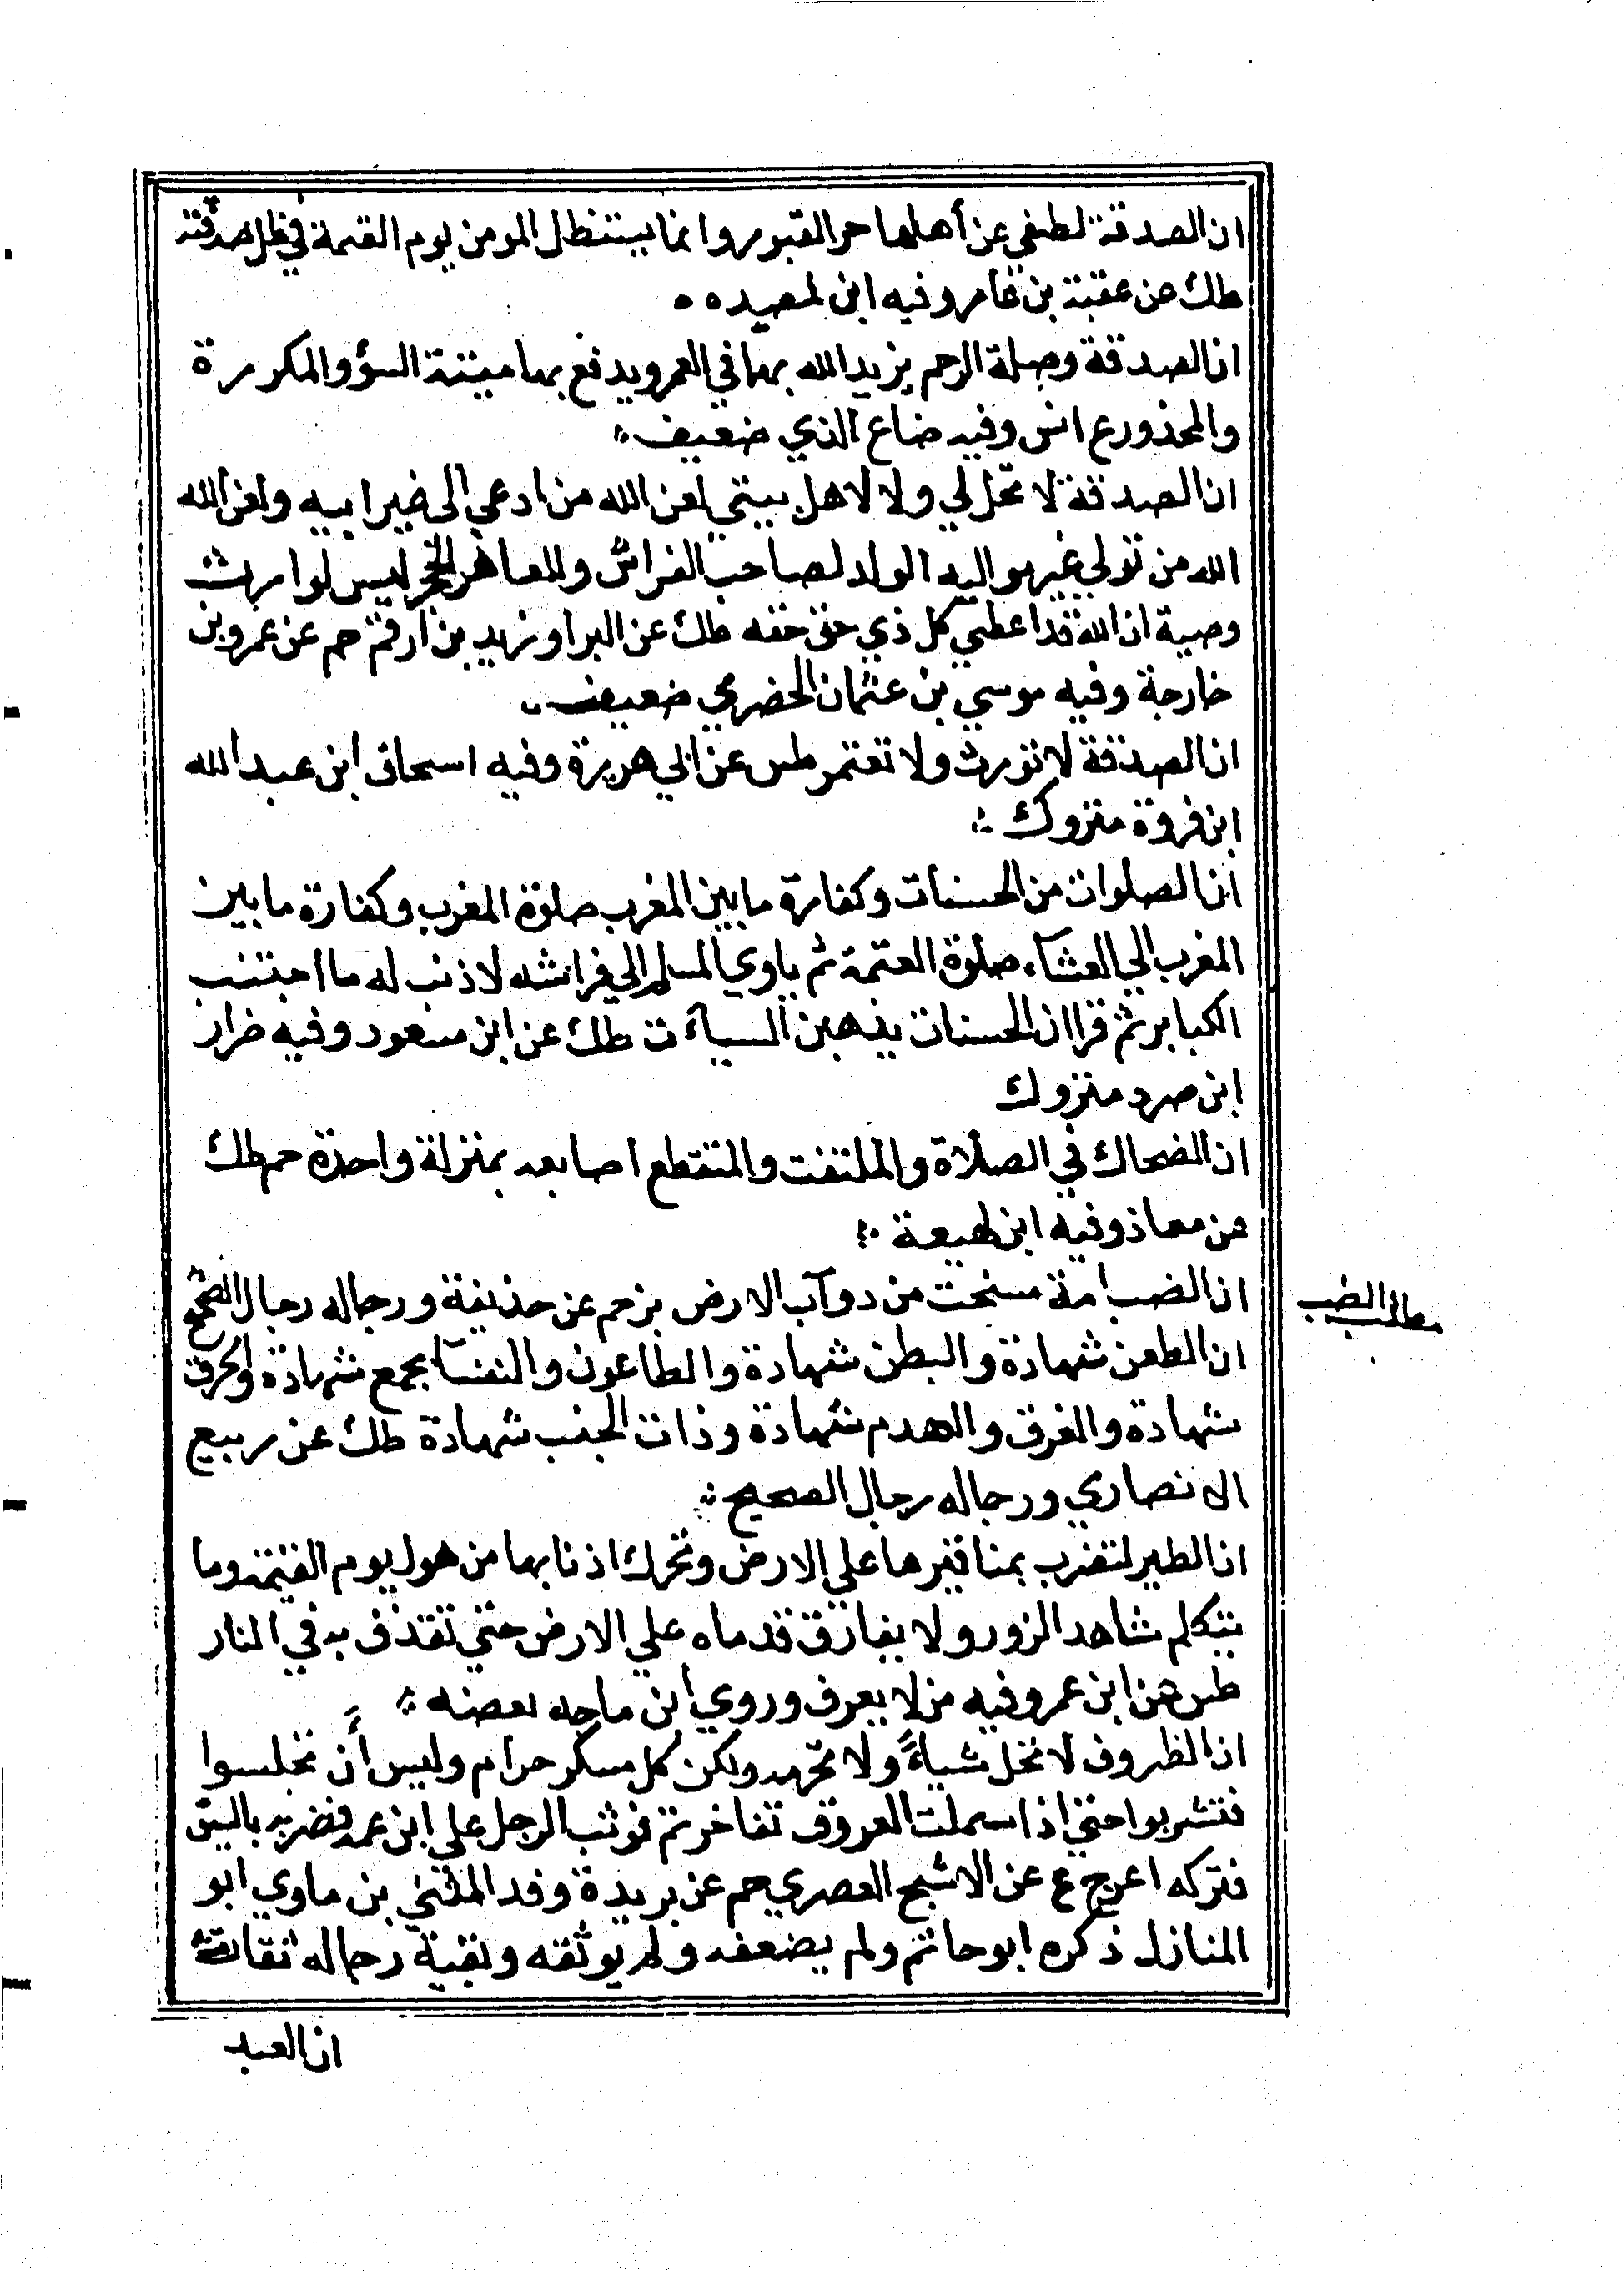 ان الصدقة لطفي عن أهلها حر القبور وانما يستظل المومن يوم القيمة في ظل صدقته
طك عن عقبة بن عامر وفيه ابن لهيعه
ان الصدقة وصلة الرحم يزيد الله بهما في العمر ويدفع بهما ميتة السؤ والمكروه
والمحذور ع انس وفيه ضاع الذي ضعيف
ان الصدقة لا تحل لي ولا لاهل بيتي لعن الله من ادعي الي غير ابيه ولعن الله
الله من تولي غير مواليه الولد لصاحب الفراش وللعاهر الحجر ليس لوارث
وصية ان الله قد اعطي كل ذي حق حقه طك عن البرا وزيد بن ارقم حم عن عمرو بن
خارجة وفيه موسي بن عثمان الحضرمي ضعيف
ان الصدقة لا تورث ولا تعتمر طس عن ابي هريرة وفيه اسحاق ابن عبد الله
ابن فروة متروك
ان الصلوات من الحسنات وكفارة ما بين المغرب صلوة المغرب وكفارة ما بين
المغرب الي العشاء صلوة العتمة ثم ياوي المسلم الي فراشه لا ذنب له ما اجتنب
الكباير ثم قرا ان الحسنات يذهبن السياءت طك عن ابن مسعود وفيه ضرار
ابن صرد متروك
ان الضحاك في الصلاة والملتفت والمتقطع اصابعه بمنزلة واحدة حم طك
عن معاذ وفيه ابن لهيعة
ان الضب امة مسخت من دوآب الارض بز حم عن حذيفة ورجاله رجال الصحيح
مطلب الضب
ان الطعن شهادة والبطن شهادة والطاعون والنفسا بجمع شهادة والحرق
شهادة والغرق والهدم شهادة وذات الجنب شهادة طك عن ربيع
الانصاري ورجاله رجال الصحيح
ان الطير لتضرب بمناقيرها علي الارض وتحرك اذنابها من هول يوم القيمة وما
يتكلم شاهد الزور ولا يفارق قدماه علي الارض حتي تقذف به في النار
طس عن ابن عمر وفيه من لا يعرف وروي ابن ماجه بعضه
ان الظروف لا تحل شياً ولا تحرمه ولكن كل مسكر حرام وليس أن تجلسوا
فتشربوا حتي اذا اسملت العروق تفاخرتم فوثب الرجل علي ابن عمه فضربه بالسيف
فتركه اعرج ع عن الاشج العصري حم عن بريدة وفد المثني بن ماوي ابو
المنازل ذكره ابو حاتم ولم يضعفه ولم يوثقه وبقية رجاله ثقات
ان العبد